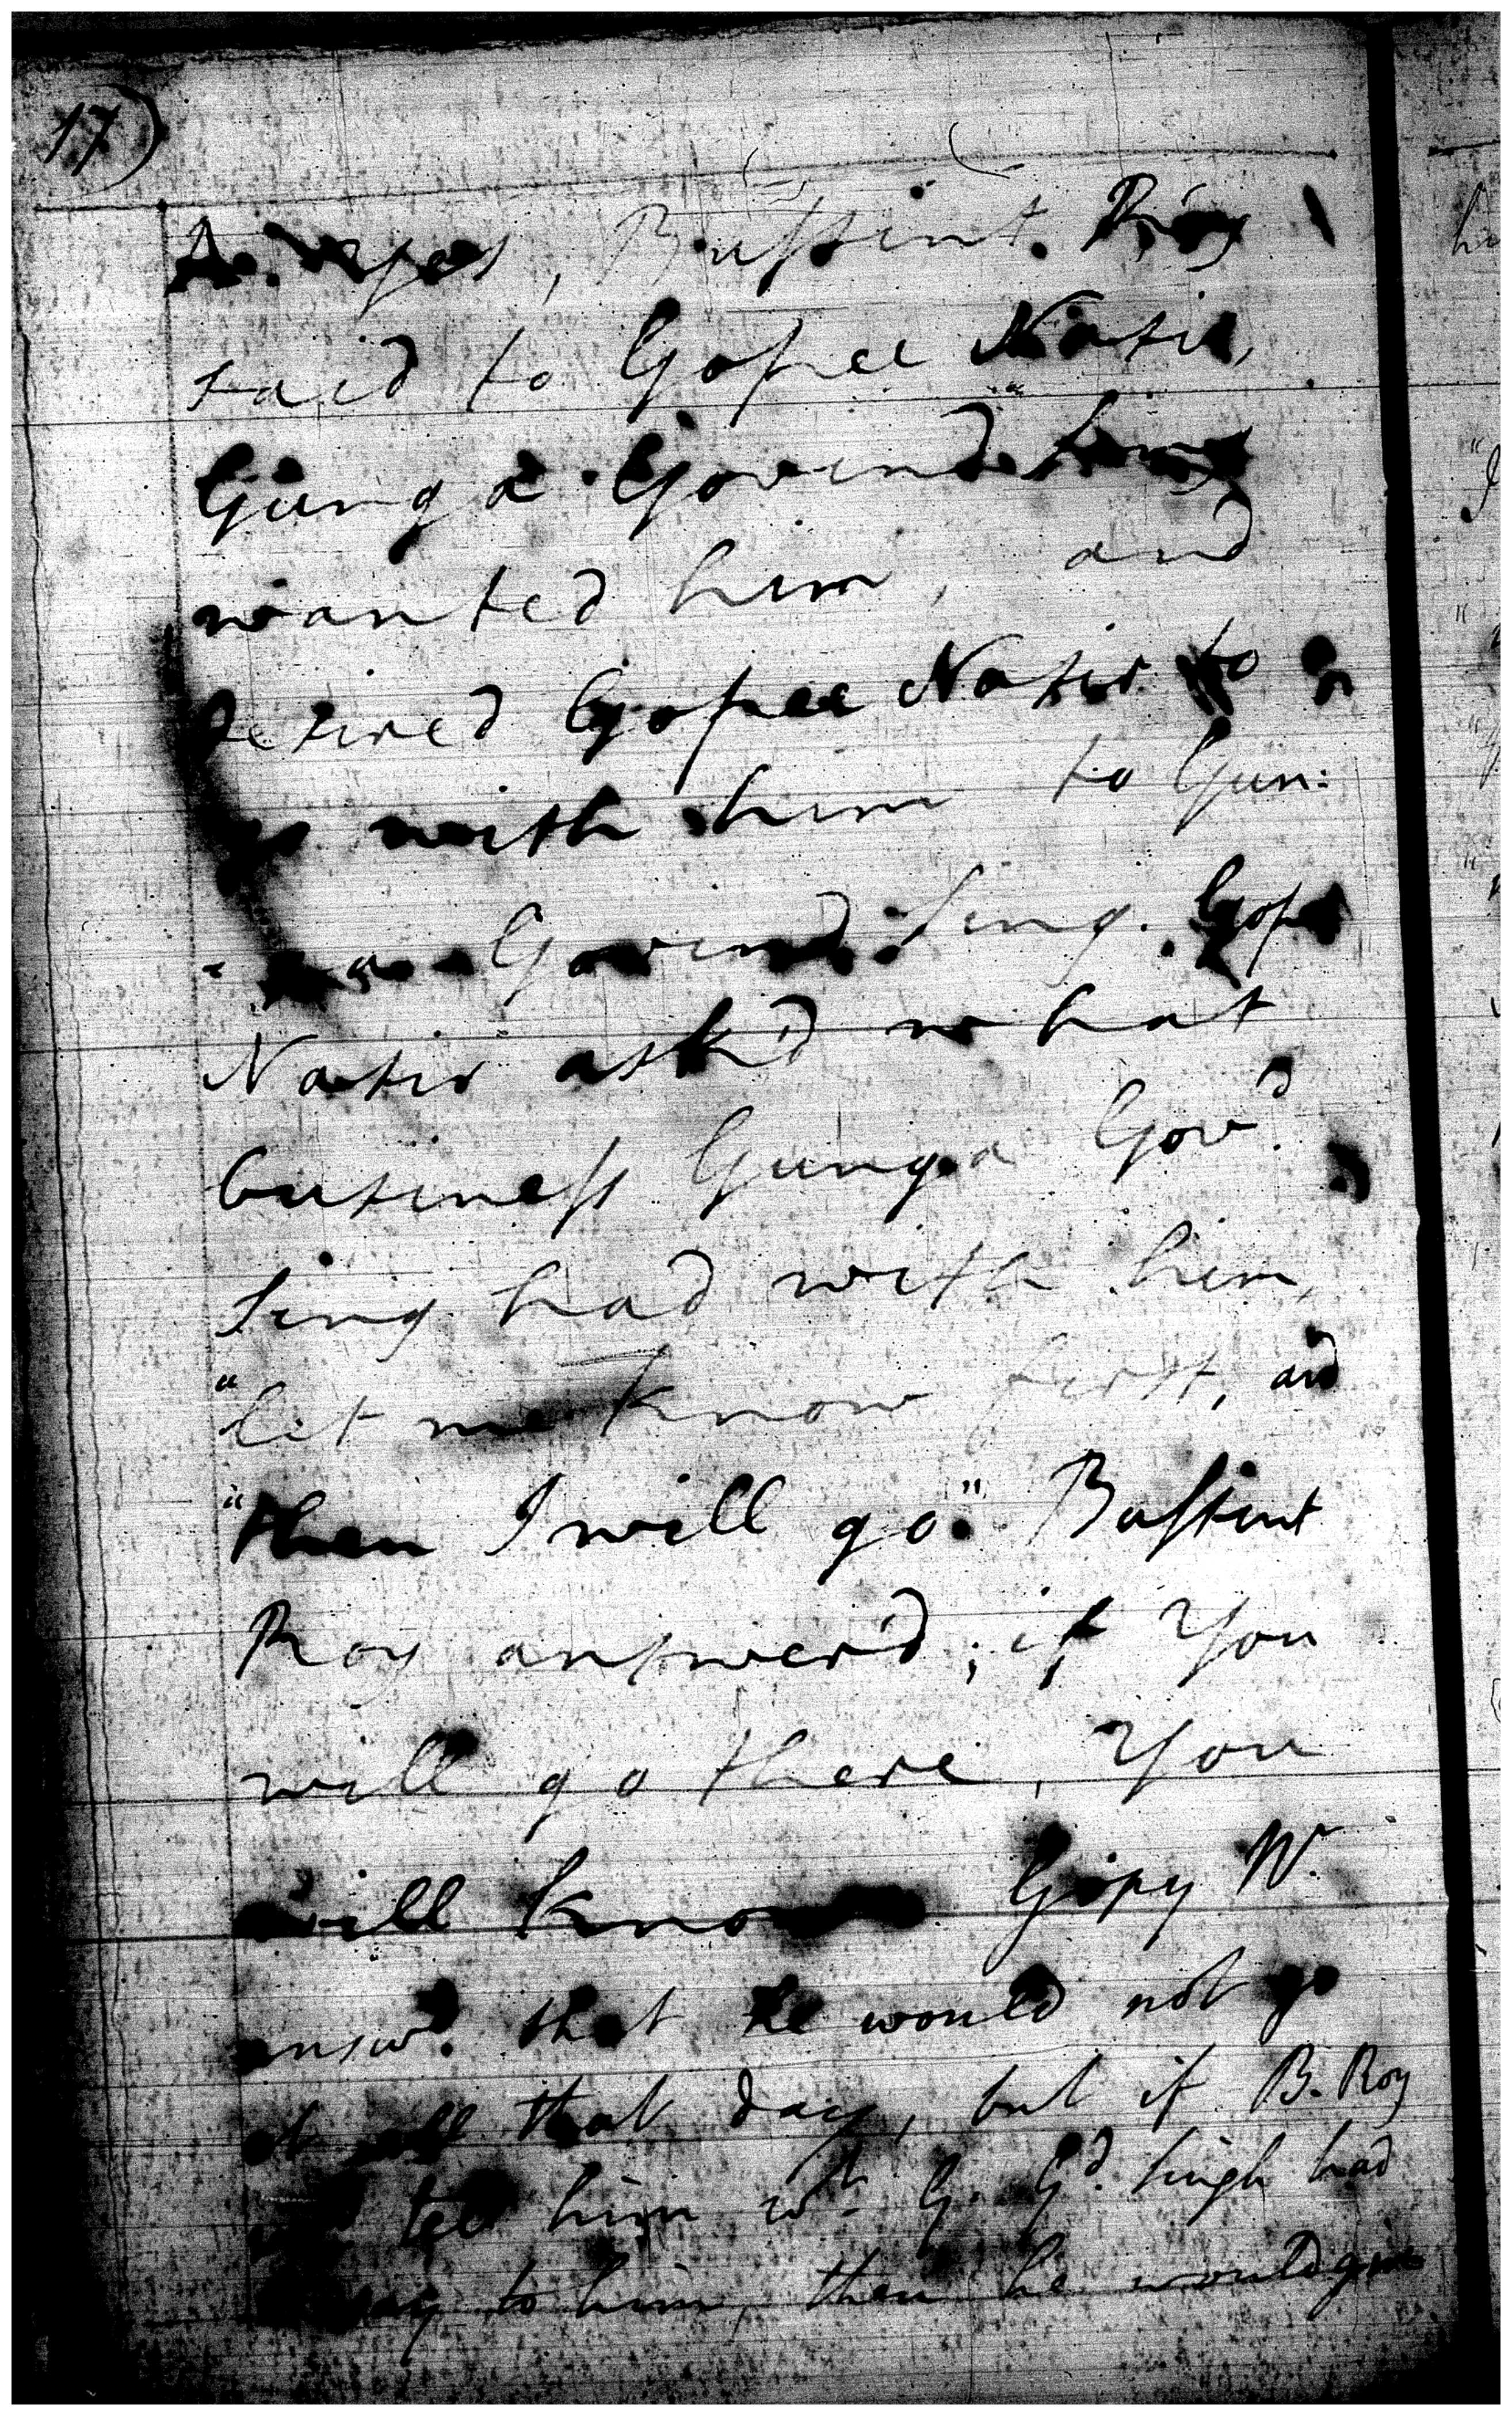 17)
A. Yes, Bussint. Roy
said to Gopee Nasir,
Gunga Govind Sing
wanted him, and
desired Gopee Nasir to
go with him to Gun:
ga Govind Sing. Gope
Nasir ask'd what
business Gunga Gov.d
Sing had with him,
"let me know first, and
"then I will go." Bussint
Roy answer'd; if You
will go there, You
will know Gopy N.
answ.d that he would not go
at all that day, but if B. Roy
tell him w.t G. G.d Singh had
to say to him, then he would give